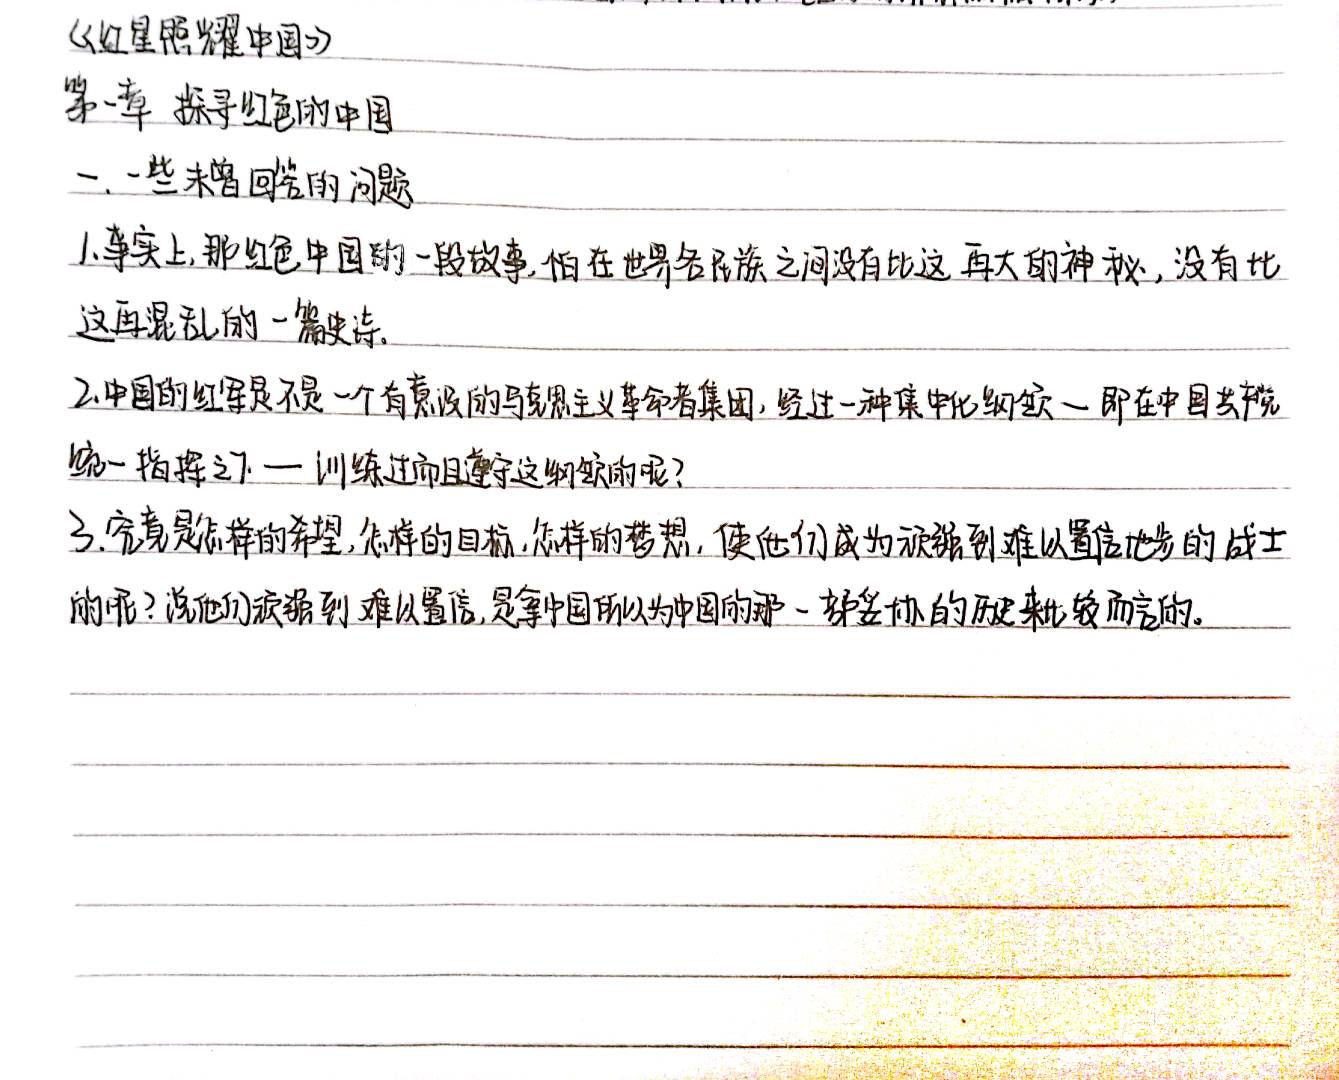 《红星照耀中国》
第一章 探寻红色的中国
一、一些未曾回答的问题
1.事实上,那红色中国的一段故事,怕在世界各民族之间没有比这再大的神秘,没有比
这再混乱的一篇史诗。
2.中国的红军是不是一个有意识的马克思主义革命者集团,经过一种集中化纲领—即在中国共产党
统一指挥之下—训练过而且遵守这纲领的呢?
3.究竟是怎样的希望,怎样的目标,怎样的梦想,使他们成为顽强到难以置信地步的战士
的呢?说他们顽强到难以置信,是拿中国所以为中国的那一部妥协的历史来比较而言的。